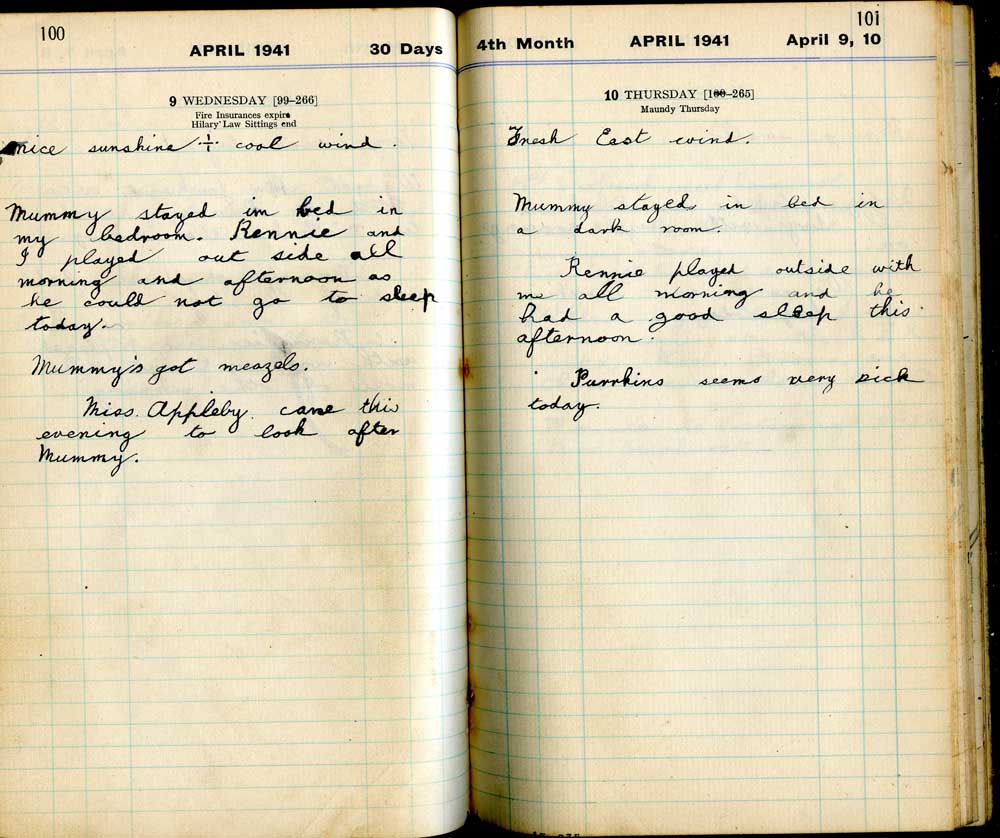 100
APRIL 1941 30 Days
9 WEDNESDAY [99–266]
Fire Insurances expire
Hilary Law Sittings end
nice sunshine + cool wind.
Mummy stayed im bed in
my bedroom. Rennie and
I played out side all
morning and afternoon as
he could not go to sleep
today.
Mummy's got meazels.
Miss. Appleby. came this
evening to look after
Mummy.
101
4th Month APRIL 1941 April 9, 10
10 THURSDAY [100–265]
Maundy Thursday
Fresh East wind.
Mummy stayed in bed in
a dark room.
Rennie played outside with
me all morning and he
had a good sleep this
afternoon.
Purrkins seems very sick
today.